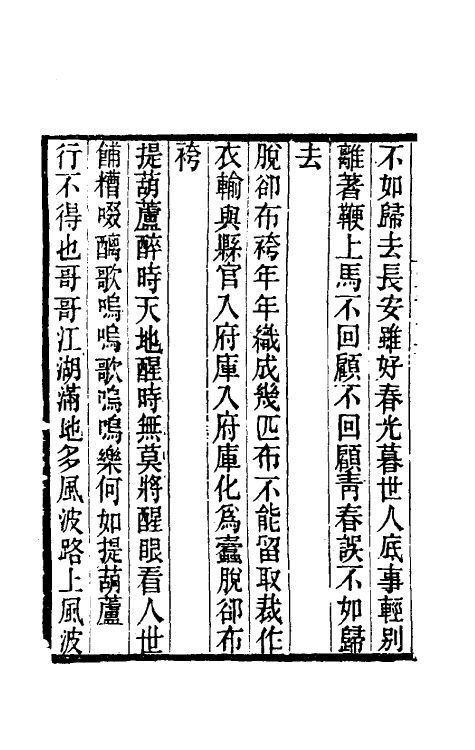 不如歸去長安雖好春光暮世人底事輕別
離著鞭上馬不回顧不回顧靑春誤不如歸
去
脫卻布袴年年織成幾匹布不能留取裁作
衣輸與縣官入府庫入府庫化爲蠹脫卻布
袴
提葫蘆醉時天地醒時無莫將醒眼看人世
餔糟啜醨歌嗚嗚歌嗚嗚樂何如提葫蘆
行不得也哥哥江湖滿地多風波路上風波